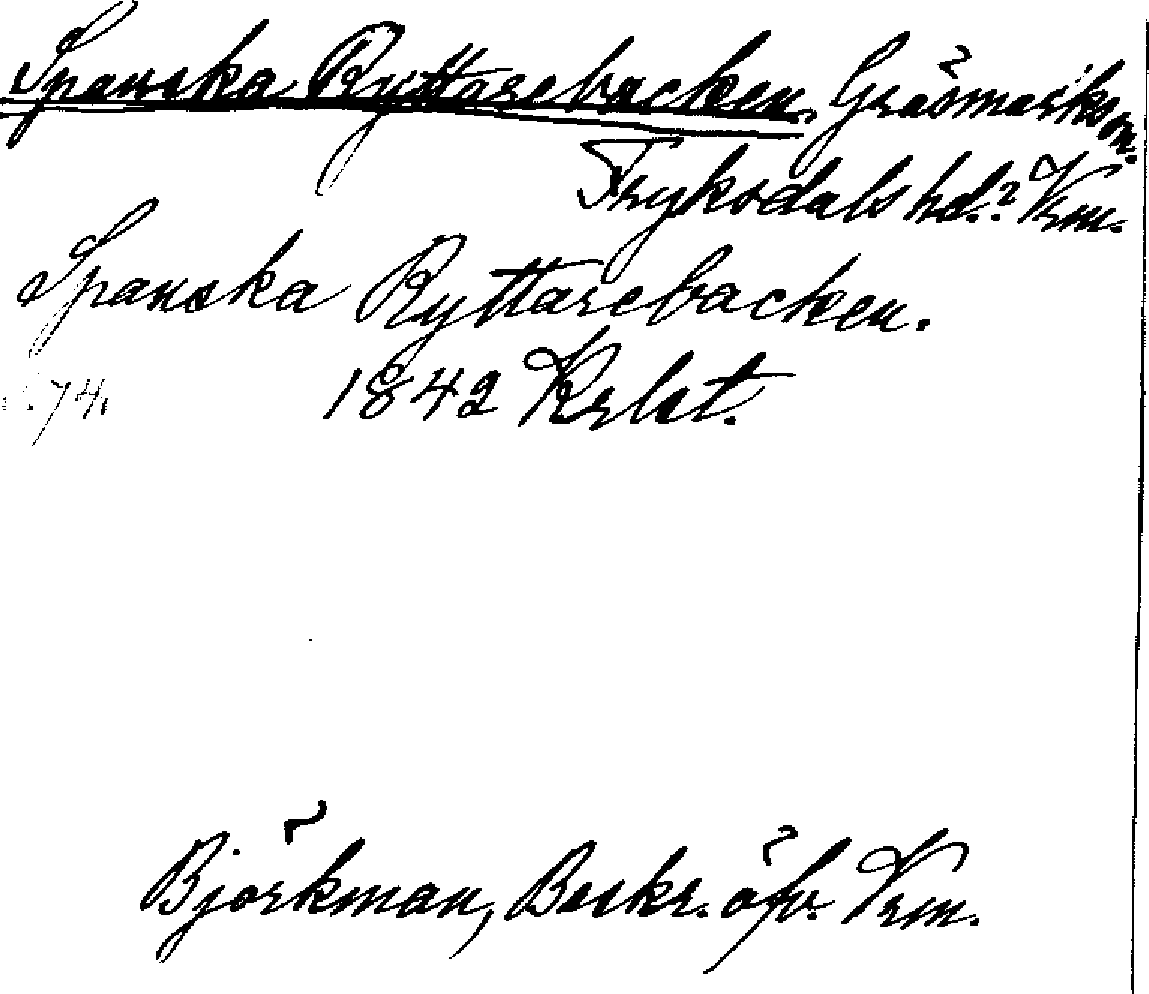 Spanska Ryttarebacken. Gräsmarks sn.
Fryksdals hd.? Vrm.
Spanska Ryttarebacken.
1842 Krlst.
s.74.
Björkman, Beskr. öfv. Vrm.